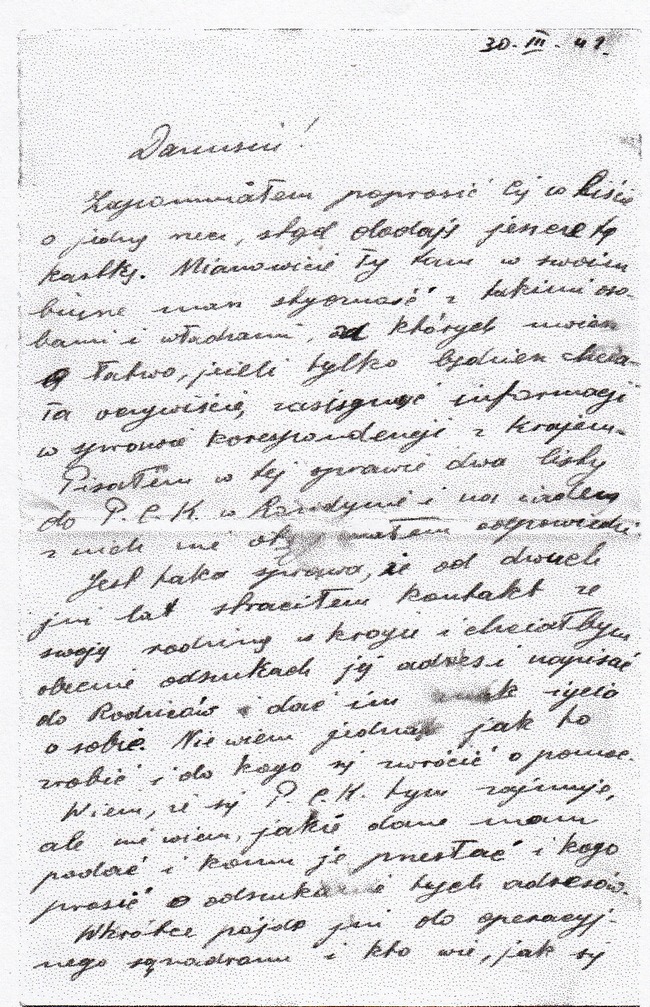 30. III. 41.
Danusiu!
Zapomniałem poprosić Cię w liście
o jedną rzecz, stąd dodaję jeszcze tę
kartkę. Mianowicie Ty tam w swoim
biurze masz styczność z takimi oso-
bami i władzami, od których możesz
łatwo, jeśli tylko będziesz chcia-
ła oczywiście, zasięgnąć informacji
w sprawie korespondencji z krajem.
Pisałem w tej sprawie dwa listy
do P.C.K. w Londynie i na żaden
z nich nie otrzymałem odpowiedzi.
Jest taka sprawa, że od dwuch
już lat straciłem kontakt ze
swoją rodziną w kraju i chciałbym
obecnie odszukać jej adres i napisać
do Rodziców i dać im znak życia
o sobie. Nie wiem jednak jak to
zrobić i do kogo się zwrócić o pomoc.
Wiem, że się P.C.K. tym zajmuje,
ale nie wiem, jakie dane mam
podać i komu je przesłać i kogo
prosić o odszukanie tych adresów.
Wkrótce pójdę już do operacyj-
nego sqadronu i kto wie, jak się